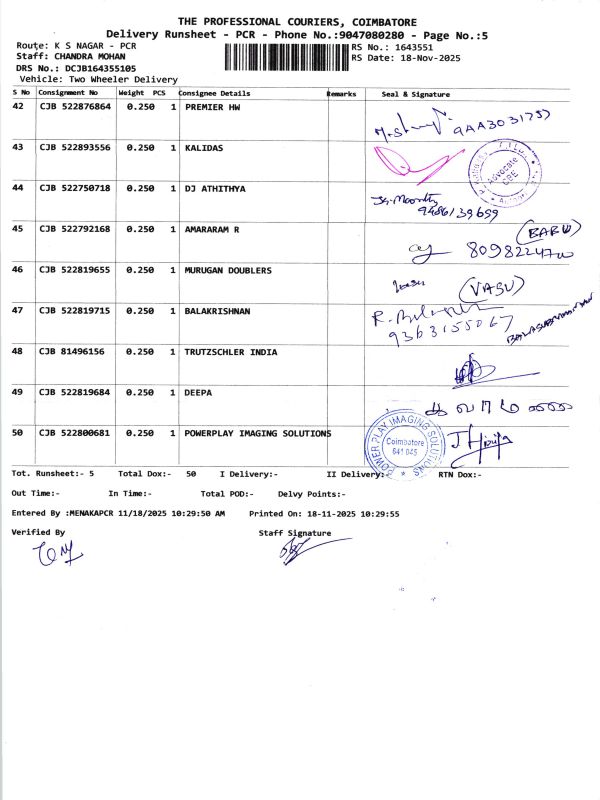 THE PROFESSIONAL COURIERS, COIMBATORE
Delivery Runsheet - PCR - Phone No.:9047080280 - Page No.:5
Route: K S NAGAR - PCR RS No.: 1643551
Staff: CHANDRA MOHAN RS Date: 18-Nov-2025
DRS No.: DCJB164355105
Vehicle: Two Wheeler Delivery
S No Consignment No Weight PCS Consignee Details Remarks Seal & Signature
42 CJB 522876864 0.250 1 PREMIER HW
43 CJB 522893556 0.250 1 KALIDAS Advocate CBE
44 CJB 522750718 0.250 1 DJ ATHITHYA 9486139699
45 CJB 522792168 0.250 1 AMARARAM R (BABU)
46 CJB 522819655 0.250 1 MURUGAN DOUBLERS (VASU)
47 CJB 522819715 0.250 1 BALAKRISHNAN 9363155067
48 CJB 81496156 0.250 1 TRUTZSCHLER INDIA
49 CJB 522819684 0.250 1 DEEPA
50 CJB 522800681 0.250 1 POWERPLAY IMAGING SOLUTIONS POWER PLAY IMAGING SOLUTIONS Coimbatore 641 045
Tot. Runsheet:- 5 Total Dox:- 50 I Delivery:- II Delivery:- RTN Dox:-
Out Time:- In Time:- Total POD:- Delvy Points:-
Entered By :MENAKAPCR 11/18/2025 10:29:50 AM Printed On: 18-11-2025 10:29:55
Verified By Staff Signature